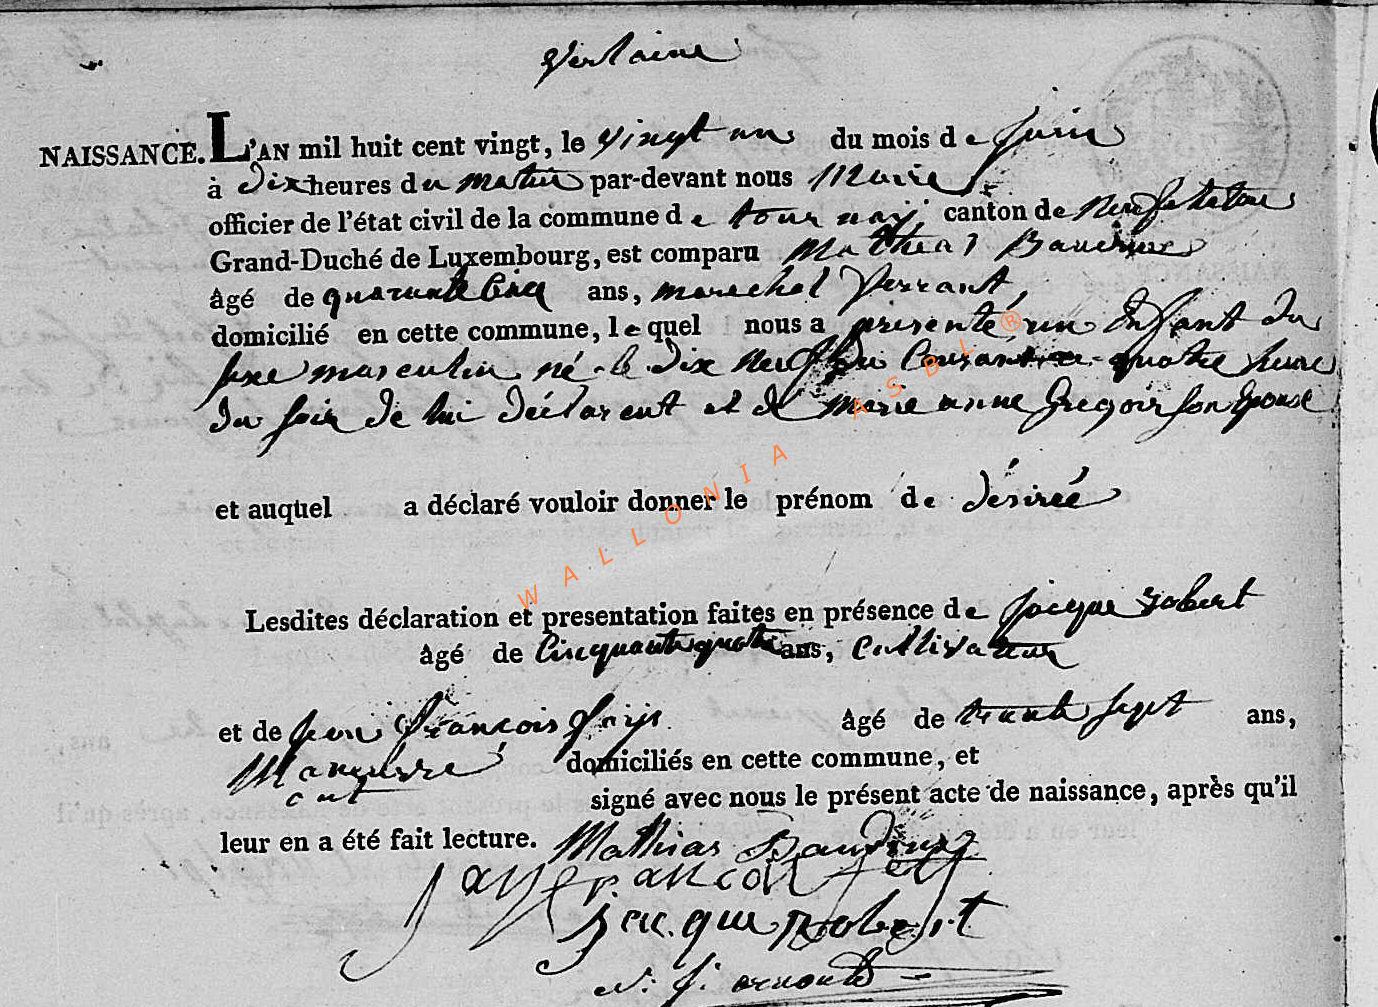 Verlaine
NAISSANCE. L'AN mil huit cent vingt, le vingt un du mois de juin
à dix heures du matin par-devant nous Maire
officier de l'état civil de la commune de tournay canton de Neufchateau
Grand-Duché de Luxembourg, est comparu Mathias
âgé de quarante cinq ans, marechal ferrant
domicilié en cette commune, lequel nous a présenté un Enfant du
sexe masculin né le dix neuf du Courant a quatre heure
du soir de lui déclarent et de marie anne Gregoir son épouse
et auquel a déclaré vouloir donner le prénom de désireé
Lesdites déclaration et presentation faites en présence de jacque robert
âgé de Cincquante quatre ans, Cultivateur
et de jean françois âgé de trente sept ans,
domiciliés en cette commune, et
ont signé avec nous le présent acte de naissance, après qu'il
leur en a été fait lecture. Mathias
jacque robert
WALLONIA ASBL®